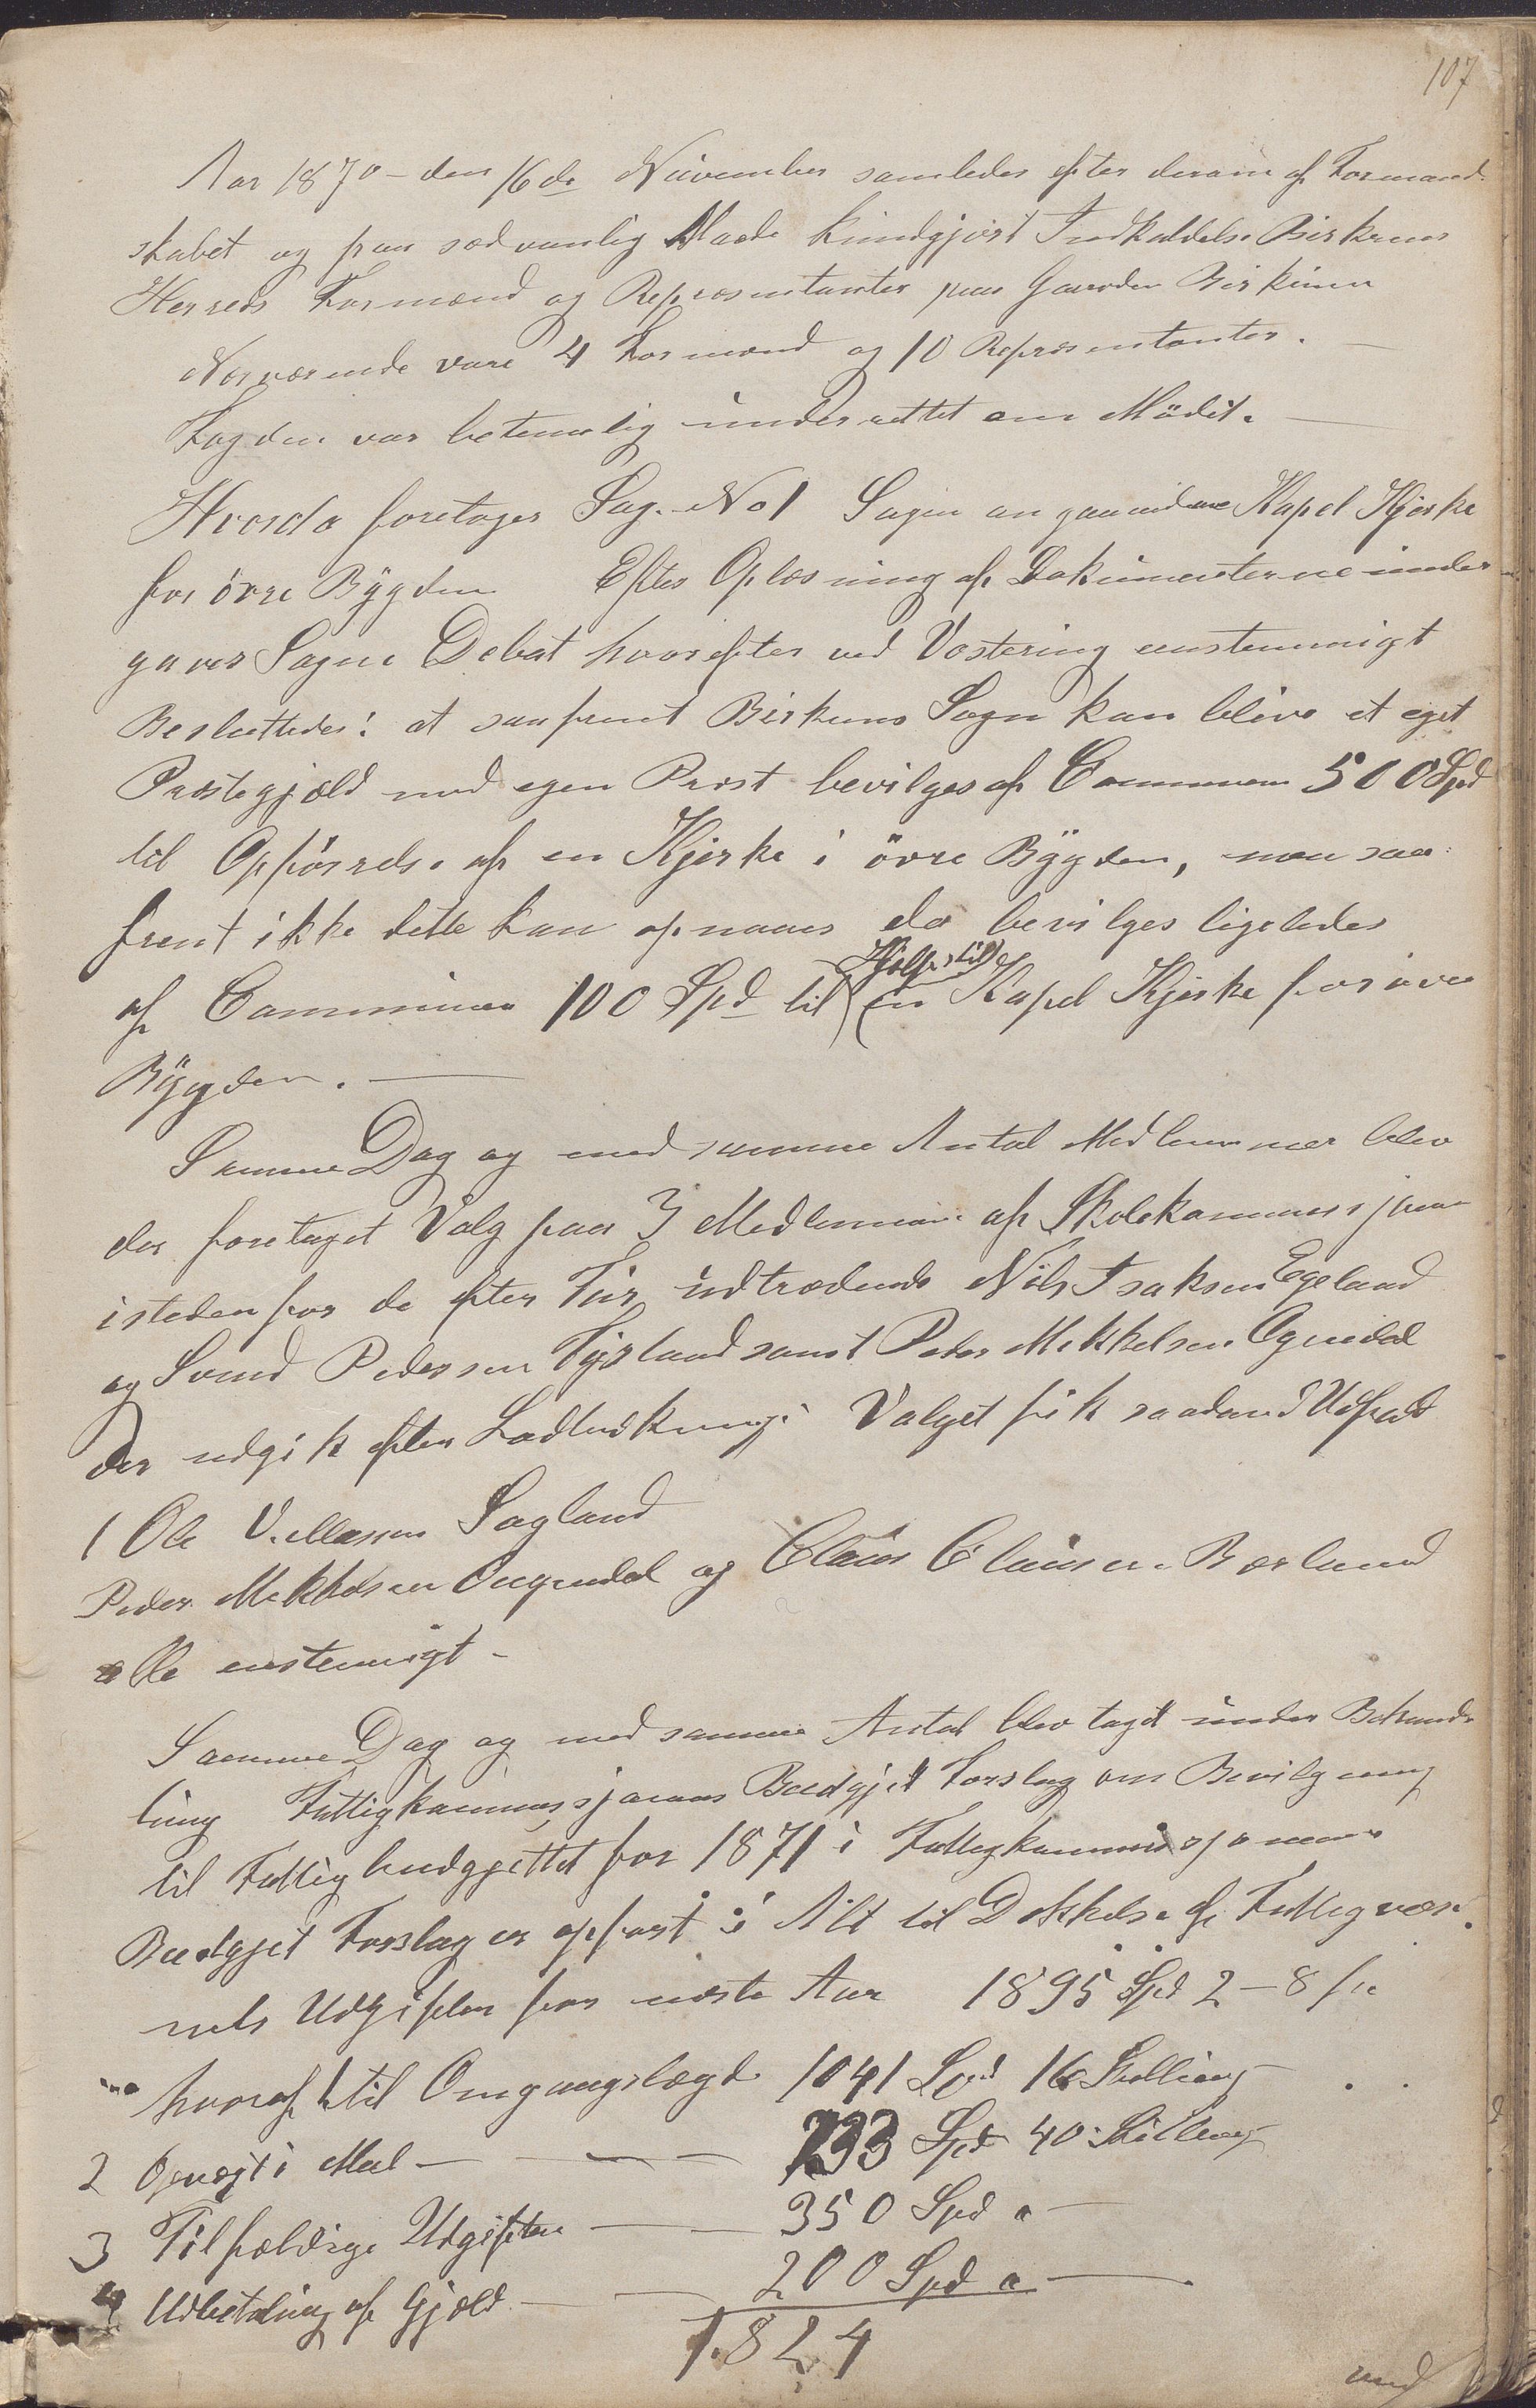 107
Aar 1870 - den 16de November samledes efter derom af Formand-
skabet og paa sædvanlig Maade kundgjort Indkaldelse Birkrems
Herreds Formænd og Repræsentanter paa Gaarden Birkrem
Nærværende vare 4 Formænd og 10 Repræsentanter. —
Fogden var betimelig underrettet om Mödet. —
Hvorda foretoges Sag. No 1 Sagen angaaende Kapel Kjerke
for övre Bÿgden Efter Oplæsning af Dokumenterne under-
gaves Sagen Debat hvorefter ved Vostering enstemmigt
Besluttedes: at saafremt Birkrems Sogn kan blive et eget
Præstegjæld med egen Præst bevilges af Communen 500 Spd
til Opförrelse af en Kjerke i övre Bÿgden, men saa-
fremt ikke dette kan opnaaes da bevilges ligeledes
Hjelp til
af Communen 100 Spd til en Kapel Kjerke for övre
Bÿgden. —
Samme Dag og med samme Antal Medlemmer blev
der foretaget Valg paa 3 Medlemmer af Skolekommissjonen
istedenfor de efter Tur udtrædende Nils Isaksen Egeland
og Svend Pedersen Tjörland samt Peder Mikkelsen Ognedal
der udgik efter Lodtrækning: Valget fik saadant Udfald
1 Ole Villassen Sagland
Peder Mikkelsen Ougendal og Claus Clausen Bærland
alle enstemmigt -
Samme Dag og med samme Antal blev taget under Behand-
ling Fattigkommissjonens Budgjet Forslag om Bevilgning
til Fattigbudgjettet for 1871 i Fattigkommissjonens
Budgjet Forslag er opfört i Alt til Dekkelse af Fattigvæse-
nets Udgifter for næste Aar 1895 Spd 2 - 8 s
hvoraf 1 til Omgangslægd 1041 Spd 16 Skilling
2 Opsagt i Mad — — — 233 Spd 40 Skilling
3 Tilfældige Udgifter — — 350 Spd " —
4 Udbetaling af Gjæld — — 200 Spd " —
1.824